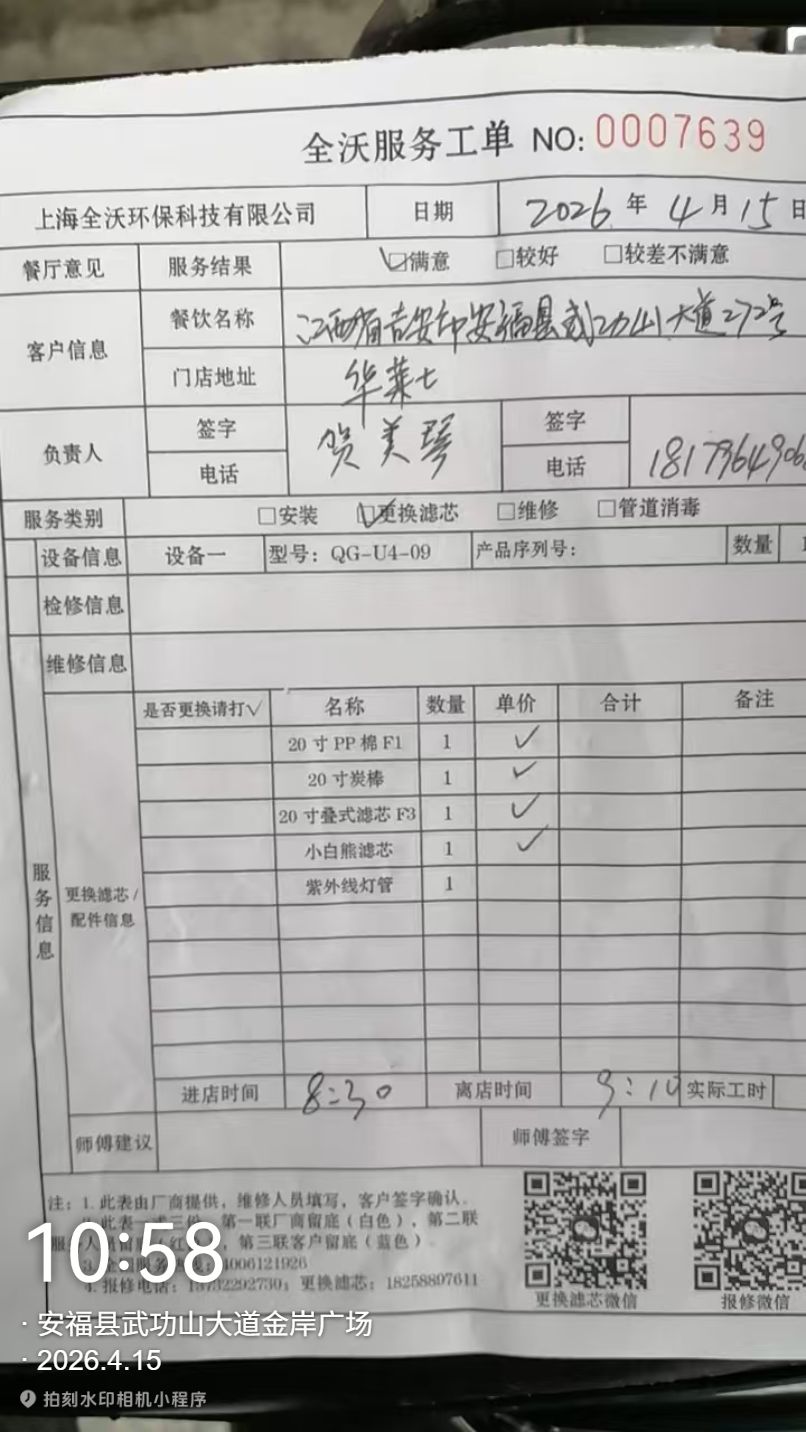 全沃服务工单 NO: 0007639
上海全沃环保科技有限公司 日期 2026 年 4 月 15 日
餐厅意见 服务结果 ☑满意 □较好 □较差不满意
客户信息 餐饮名称 江西省吉安市安福县武功山大道272号
门店地址 华莱士
负责人 签字 贺美琴 签字
电话 电话 1817964906
服务类别 □安装 ☑更换滤芯 □维修 □管道消毒
设备信息 设备一 型号: QG-U4-09 产品序列号: 数量
检修信息
维修信息
是否更换请打√ 名称 数量 单价 合计 备注
20 寸 PP 棉 F1 1 ✓
20 寸炭棒 1 ✓
20 寸叠式滤芯 F3 1 ✓
小白熊滤芯 1 ✓
紫外线灯管 1
服务信息
更换滤芯/
配件信息
进店时间 8:30 离店时间 9:10 实际工时
师傅建议 师傅签字
注: 1. 此表由厂商提供, 维修人员填写, 客户签字确认.
此表一式三份, 第一联厂商留底(白色), 第二联
人员留底(红色), 第三联客户留底(蓝色).
4006121926
4. 报修电话: 13732292730; 更换滤芯: 18258897611
更换滤芯微信 报修微信
10:58
· 安福县武功山大道金岸广场
· 2026.4.15
拍刻水印相机小程序